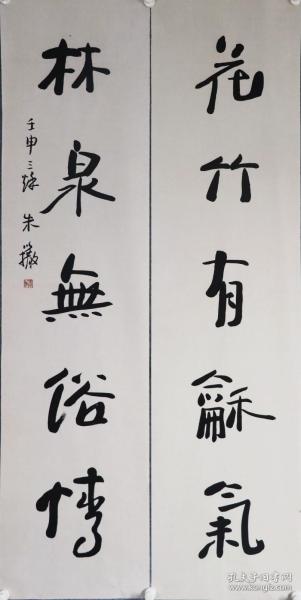 花竹有龢氣
林泉無俗情
壬申三秋 朱
孔夫子旧书网